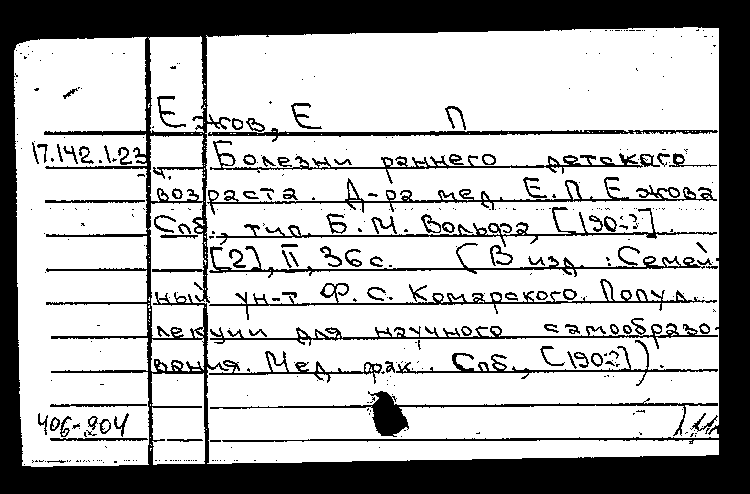 Ежов, Е П
17.142.1.23 Болезни раннего детского
возраста. Д-ра мед. Е.П. Ежова
Спб., тип. Б.М. Вольфа, [190-?].
[2], II, 36 с. (В изд.: Семей-
ный ун-т Ф.С. Комарского. Попул.
лекции для научного самообразо-
вания. Мед. фак. Спб., [190-?]).
406-204